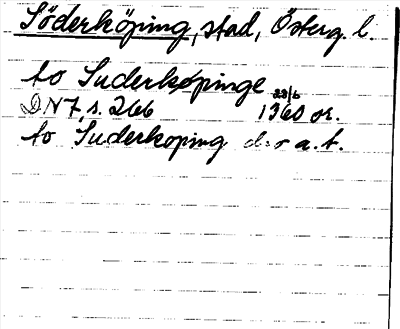 Söderköping, stad, Österg. l.
to Suderkøpinge
DN 7, s. 266 23/6 1360 or.
to Suderkoping a. t.